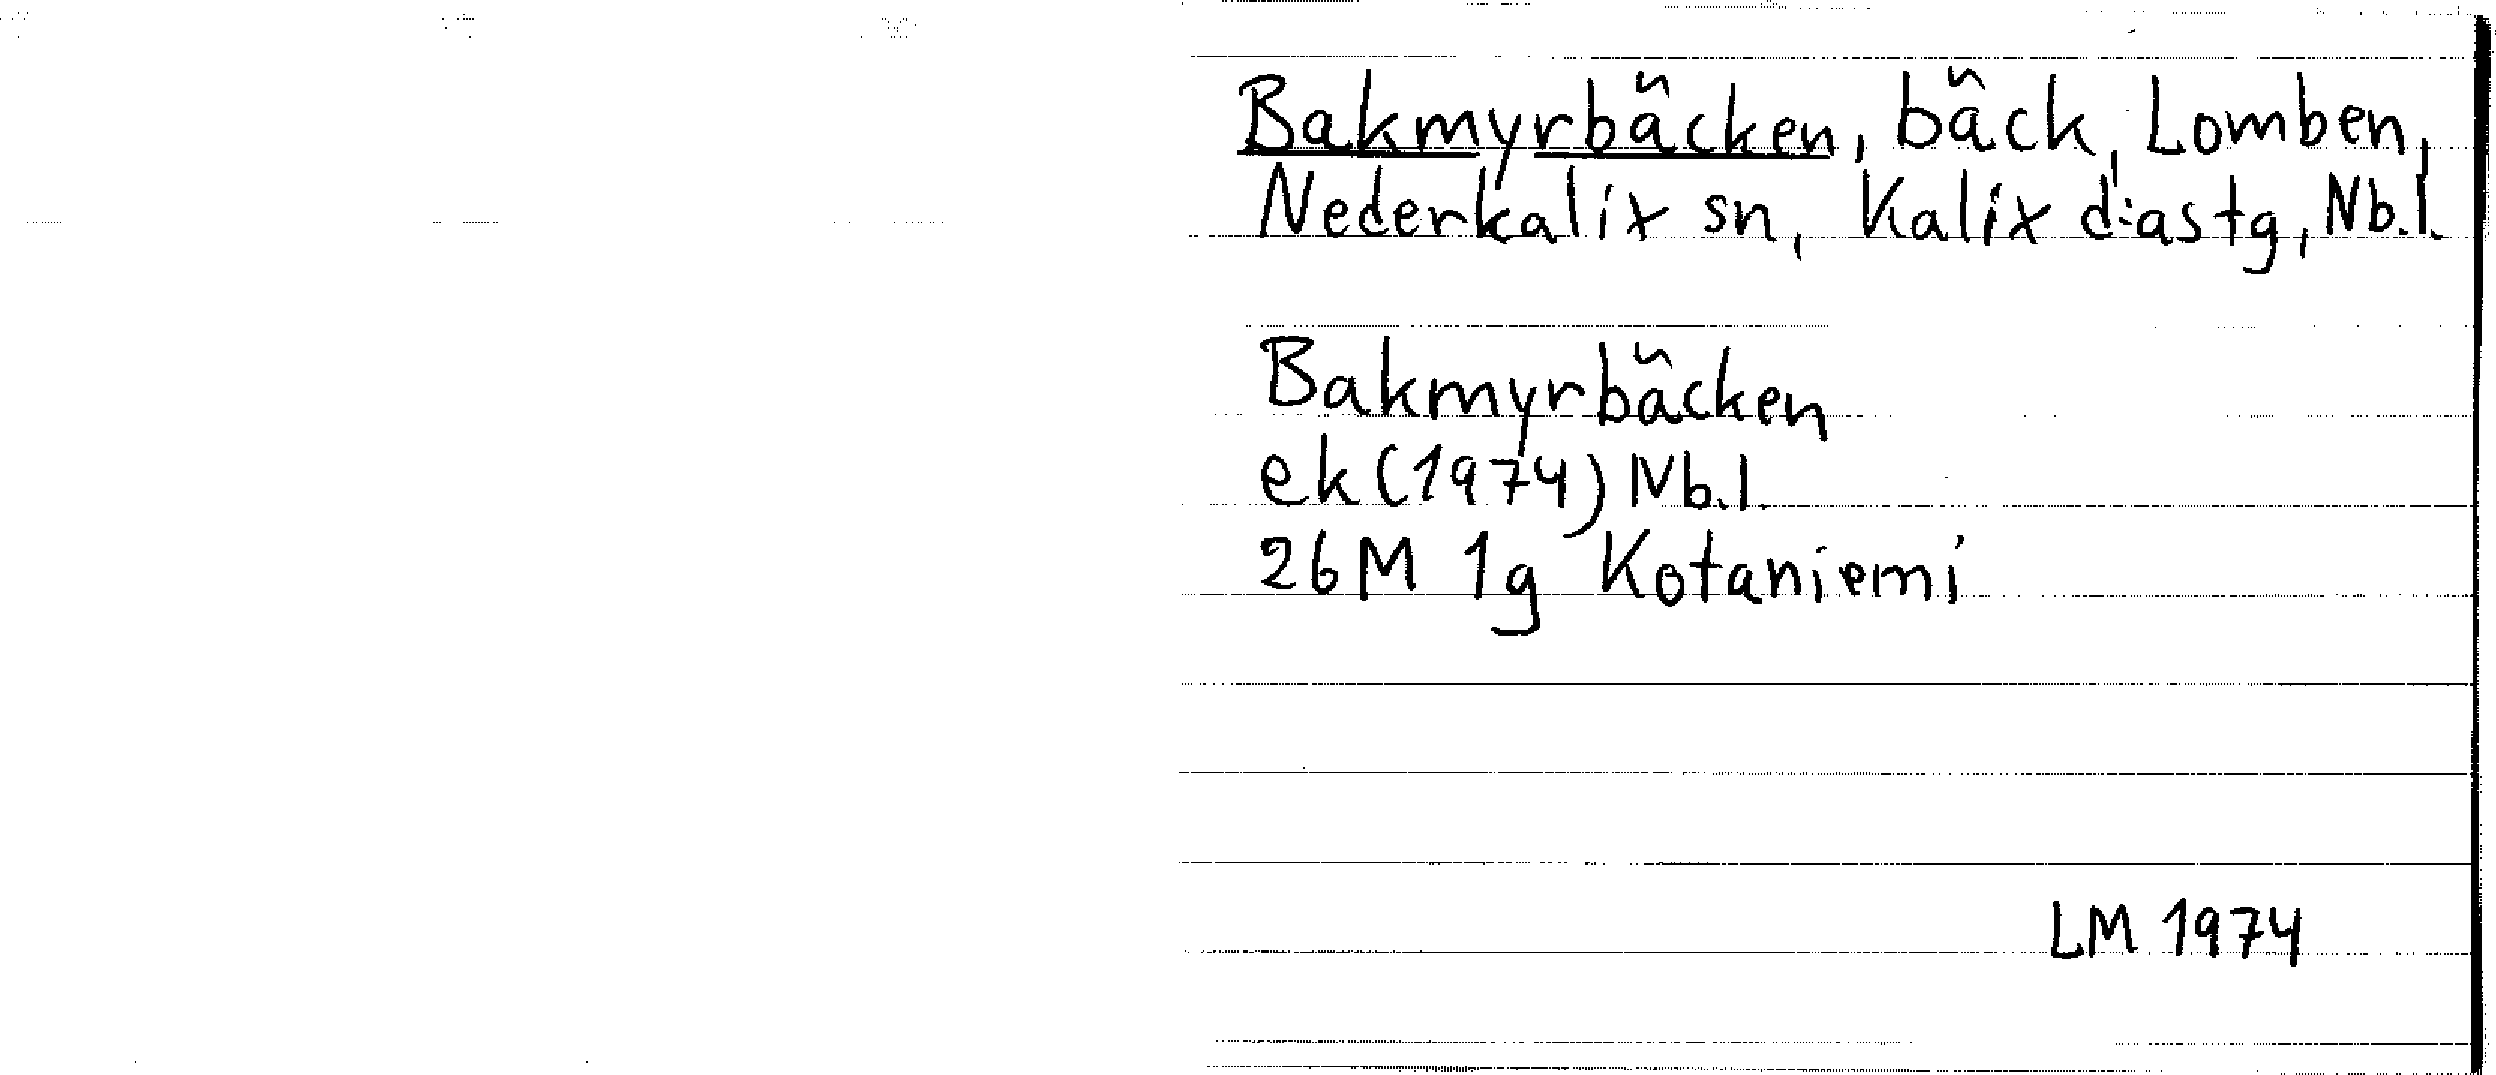 Bakmyrbäcken, bäck, Lomben,
Nederkalix sn, Kalix d:astg, Nb.l.
Bakmyrbäcken
ek (1974) Nb.l.
26M 1g Kotaniemi
LM 1974